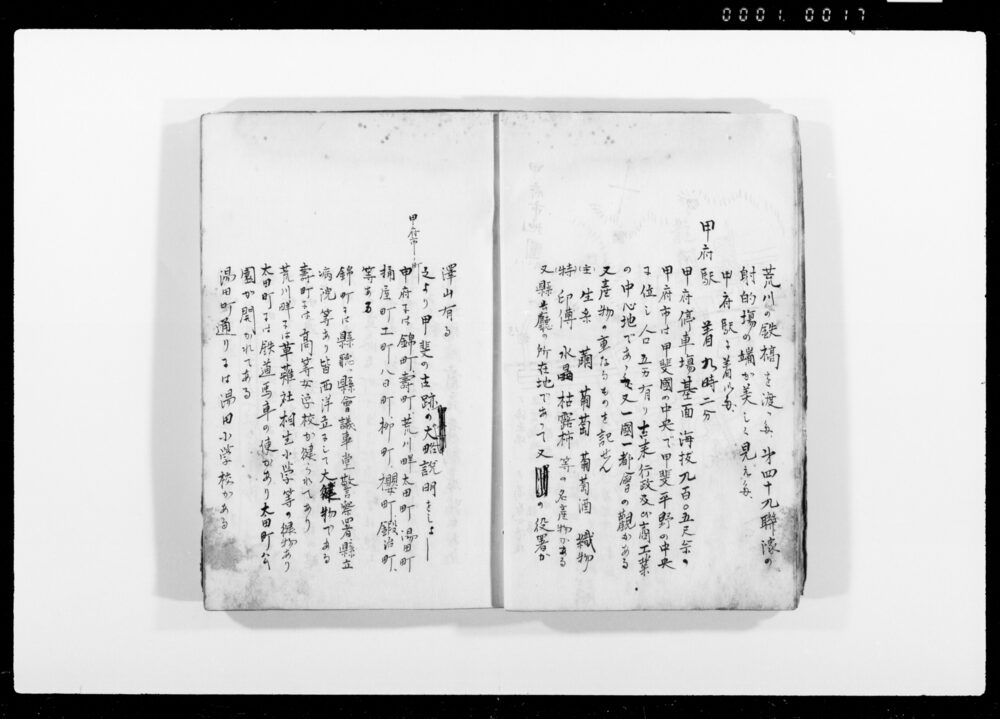 0001.0017
荒川の鉄橋を渡った、第四十九聯隊の
射的場の端が美しく見えた、
甲府駅に着いた、
甲府駅　着九時二分
甲府停車場基面　海抜九百〇五尺余の
甲府市は甲斐國の中央で甲斐平野の中央
に位し人口五万有り古来行政及び商工業
の中心地であって又一國一都會の觀がある
又産物の重なるものを記せん
生糸　繭　葡萄　葡萄酒　織物
特印傳　水晶　枯露柿　等の名産物がある
又縣廳の所在地であって又の役署が
澤山有る
之より甲斐の古跡の大略説明をしよー
甲府市ノ町
甲府には錦町壽町荒川畔太田町湯田町
桶屋町工町八日町柳町、櫻町、鍛冶町、
等ある
錦町には縣廳、縣會議事堂警察署縣立
病院、等あり皆西洋立にして大建物である
壽町には高等女学校が健られてあり
荒川畔には草薙社相生小学等の建物あり
太田町には鉄道馬車の便があり太田町公
園が開かれてある
湯田町通りには湯田小学校がある